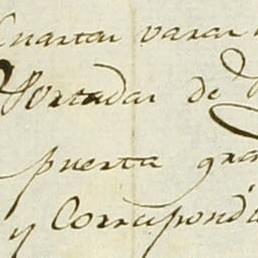 Cuartas varas
Portadas de
puerta gra
y Correspond